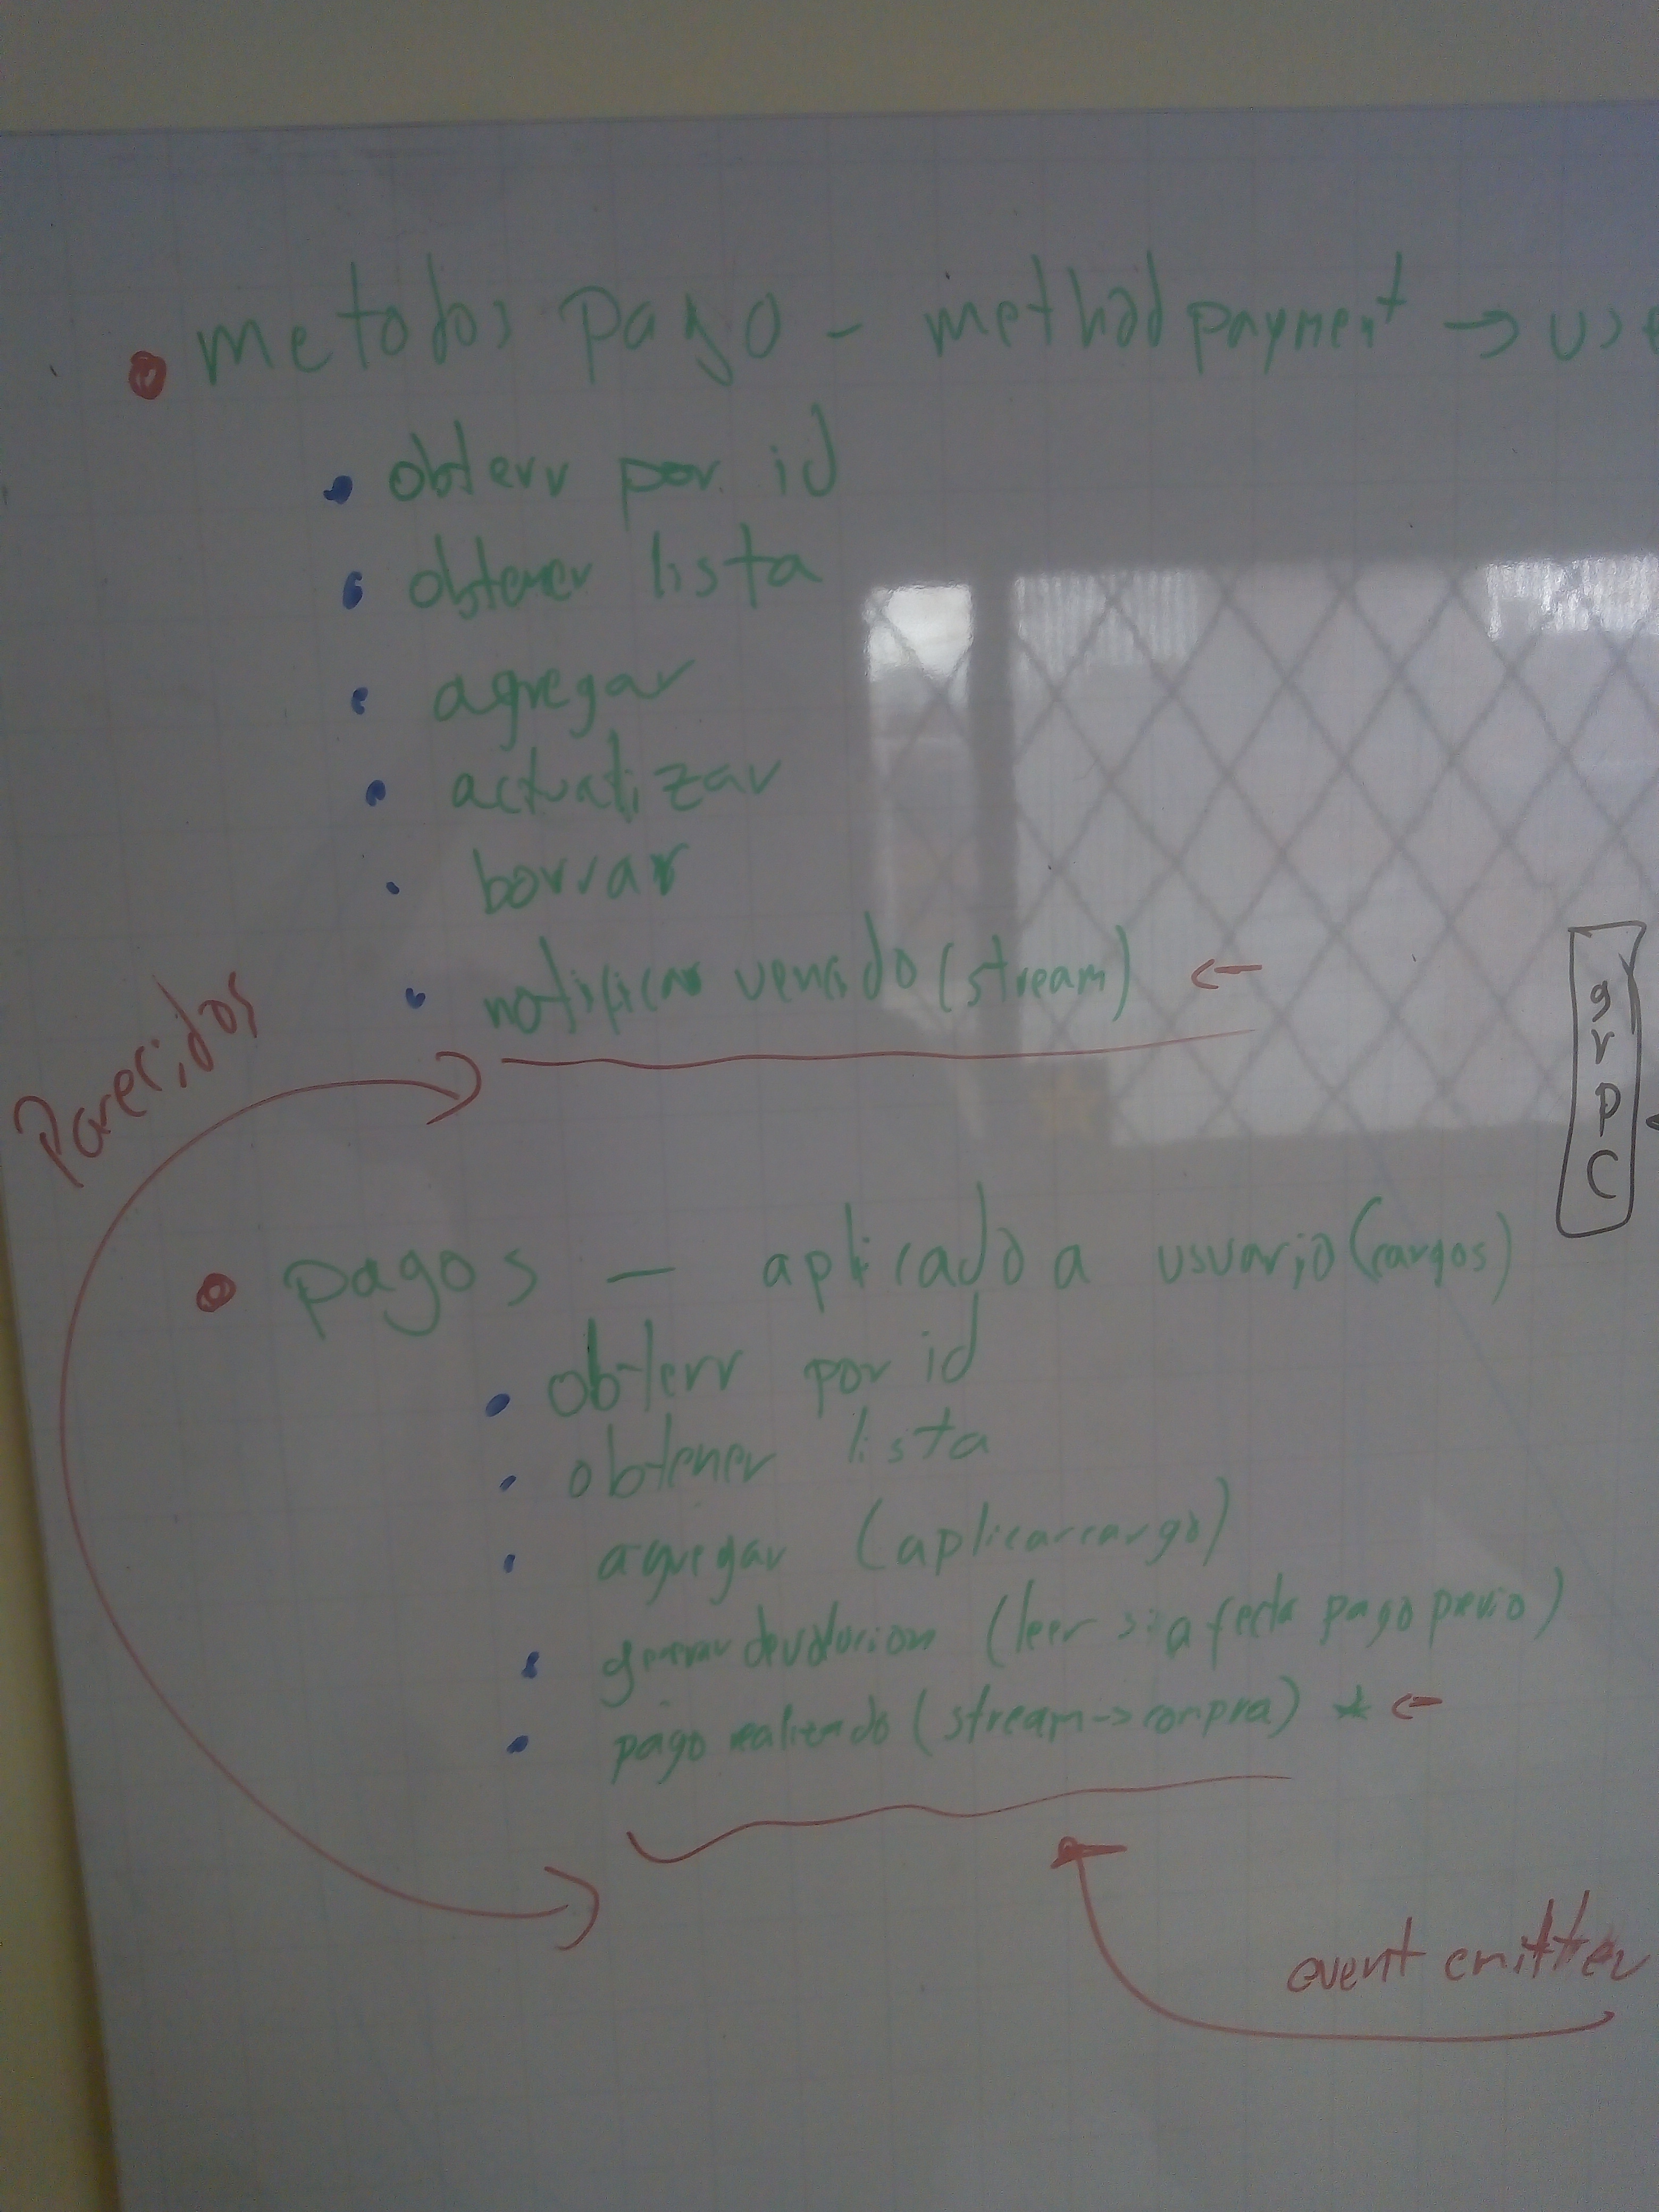 metodos pago - method payment → use
obtenr por id
obtener lista
agregar
actualizar
borrar
notificar vencido (stream) ←
Parecidos
grPC
pagos - aplicado a usuario (cargos)
obtenr por id
obtener lista
agregar (aplicar cargo)
generar devolucion (leer si afecta pago previo)
pago realizado (stream → compra) * ←
event emitter